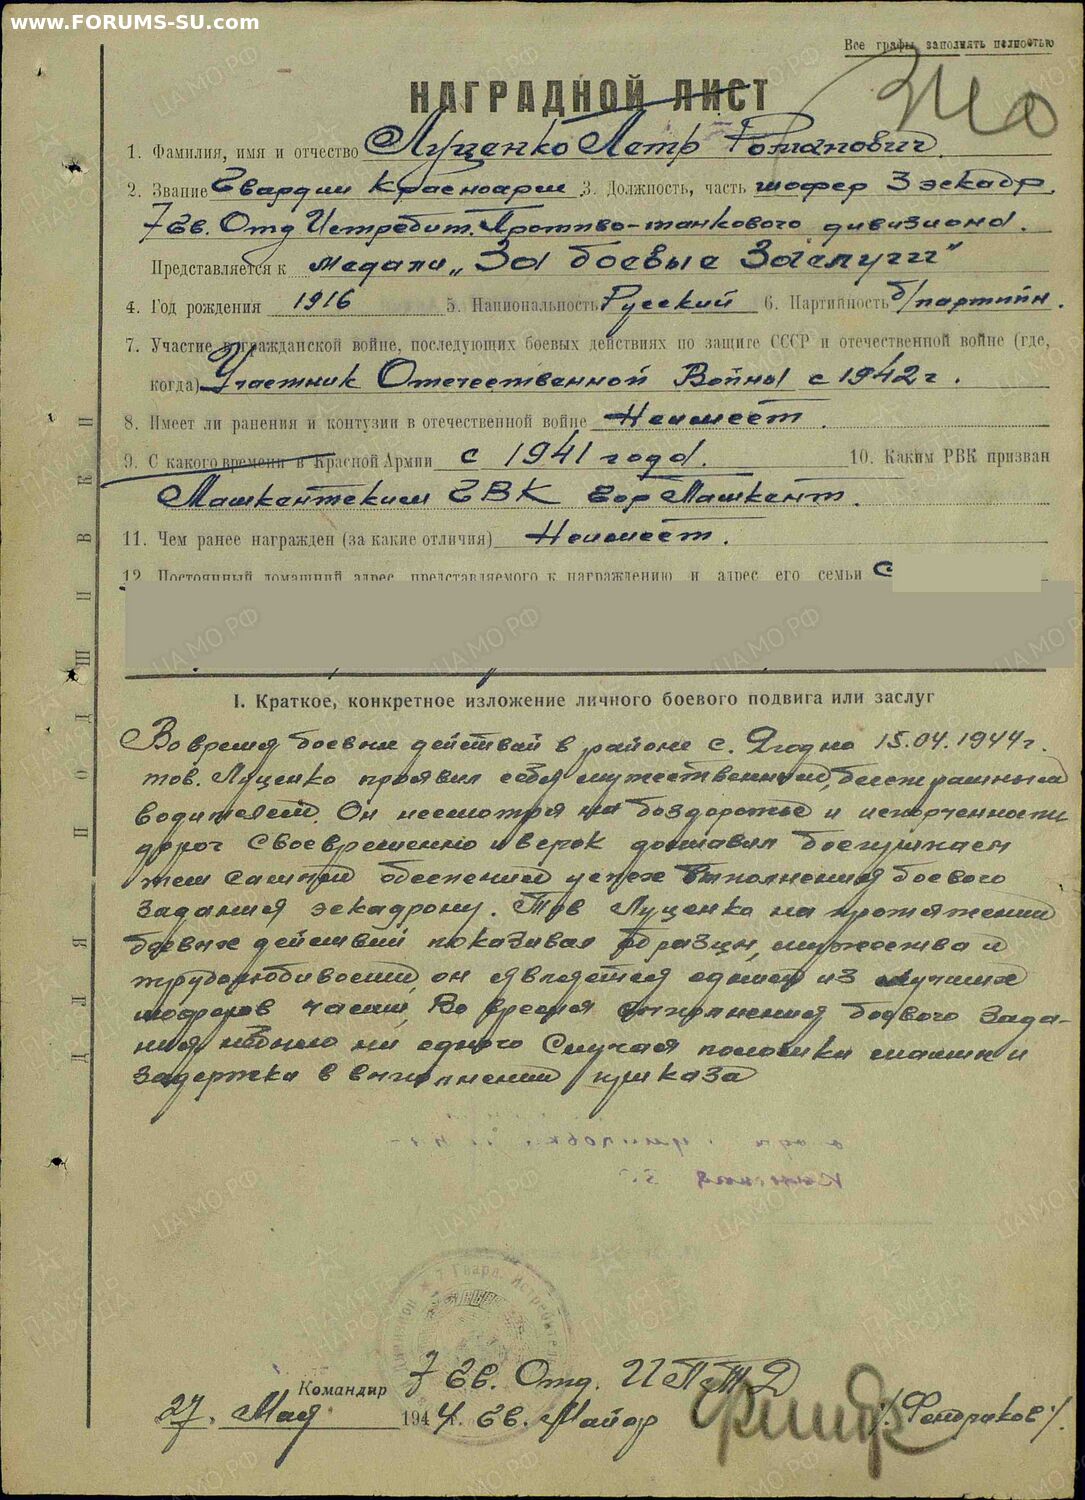 www.FORUMS-SU.com
Все графы заполнять полностью
НАГРАДНОЙ ЛИСТ
1. Фамилия, имя и отчество Луценко Петр Романович.
2. Звание Гвардии Красноарм 3. Должность, часть шофер 3 эскадр.
7 Гв. Отд Истребит. Противо-танкового дивизиона.
Представляется к медали „За боевые Заслуги"
4. Год рождения 1916 5. Национальность Русский 6. Партийность б/партийн.
7. Участие в гражданской войне, последующих боевых действиях по защите СССР и отечественной войне (где,
когда) Участник Отечественной Войны с 1942 г.
8. Имеет ли ранения и контузии в отечественной войне Неимеет.
9. С какого времени в Красной Армии с 1941 года. 10. Каким РВК призван
Ташкентским ГВК гор Ташкент.
11. Чем ранее награжден (за какие отличия) Неимеет.
12 Постоянный домашний адрес представляемого к награждению и адрес его семьи С
I. Краткое, конкретное изложение личного боевого подвига или заслуг
Во время боевых действий в районе с. Ягодно 15.04.1944 г.
тов. Луценко проявил себя мужественным, бесстрашным
водителем. Он несмотря на бездорожье и испорченность
дорог своевременно и в срок доставлял
тем самым обеспечил успех выполнения боевого
задания эскадрону. Тов Луценко на протяжении
боевых действий показывал образцы, мужества и
трудолюбивости, он является одним из лучших
шоферов части, Во время выполнения боевого зада-
ния небыло ни одного Случая поломки машин и
задержки в выполнении приказа
Командир 7 Гв. Отд. ИПТД
27. Мая 1944 г. Гв. Майор
ДЛЯ ПОДШИВКИ
ЦАМО.РФ
ПАМЯТЬ НАРОДА